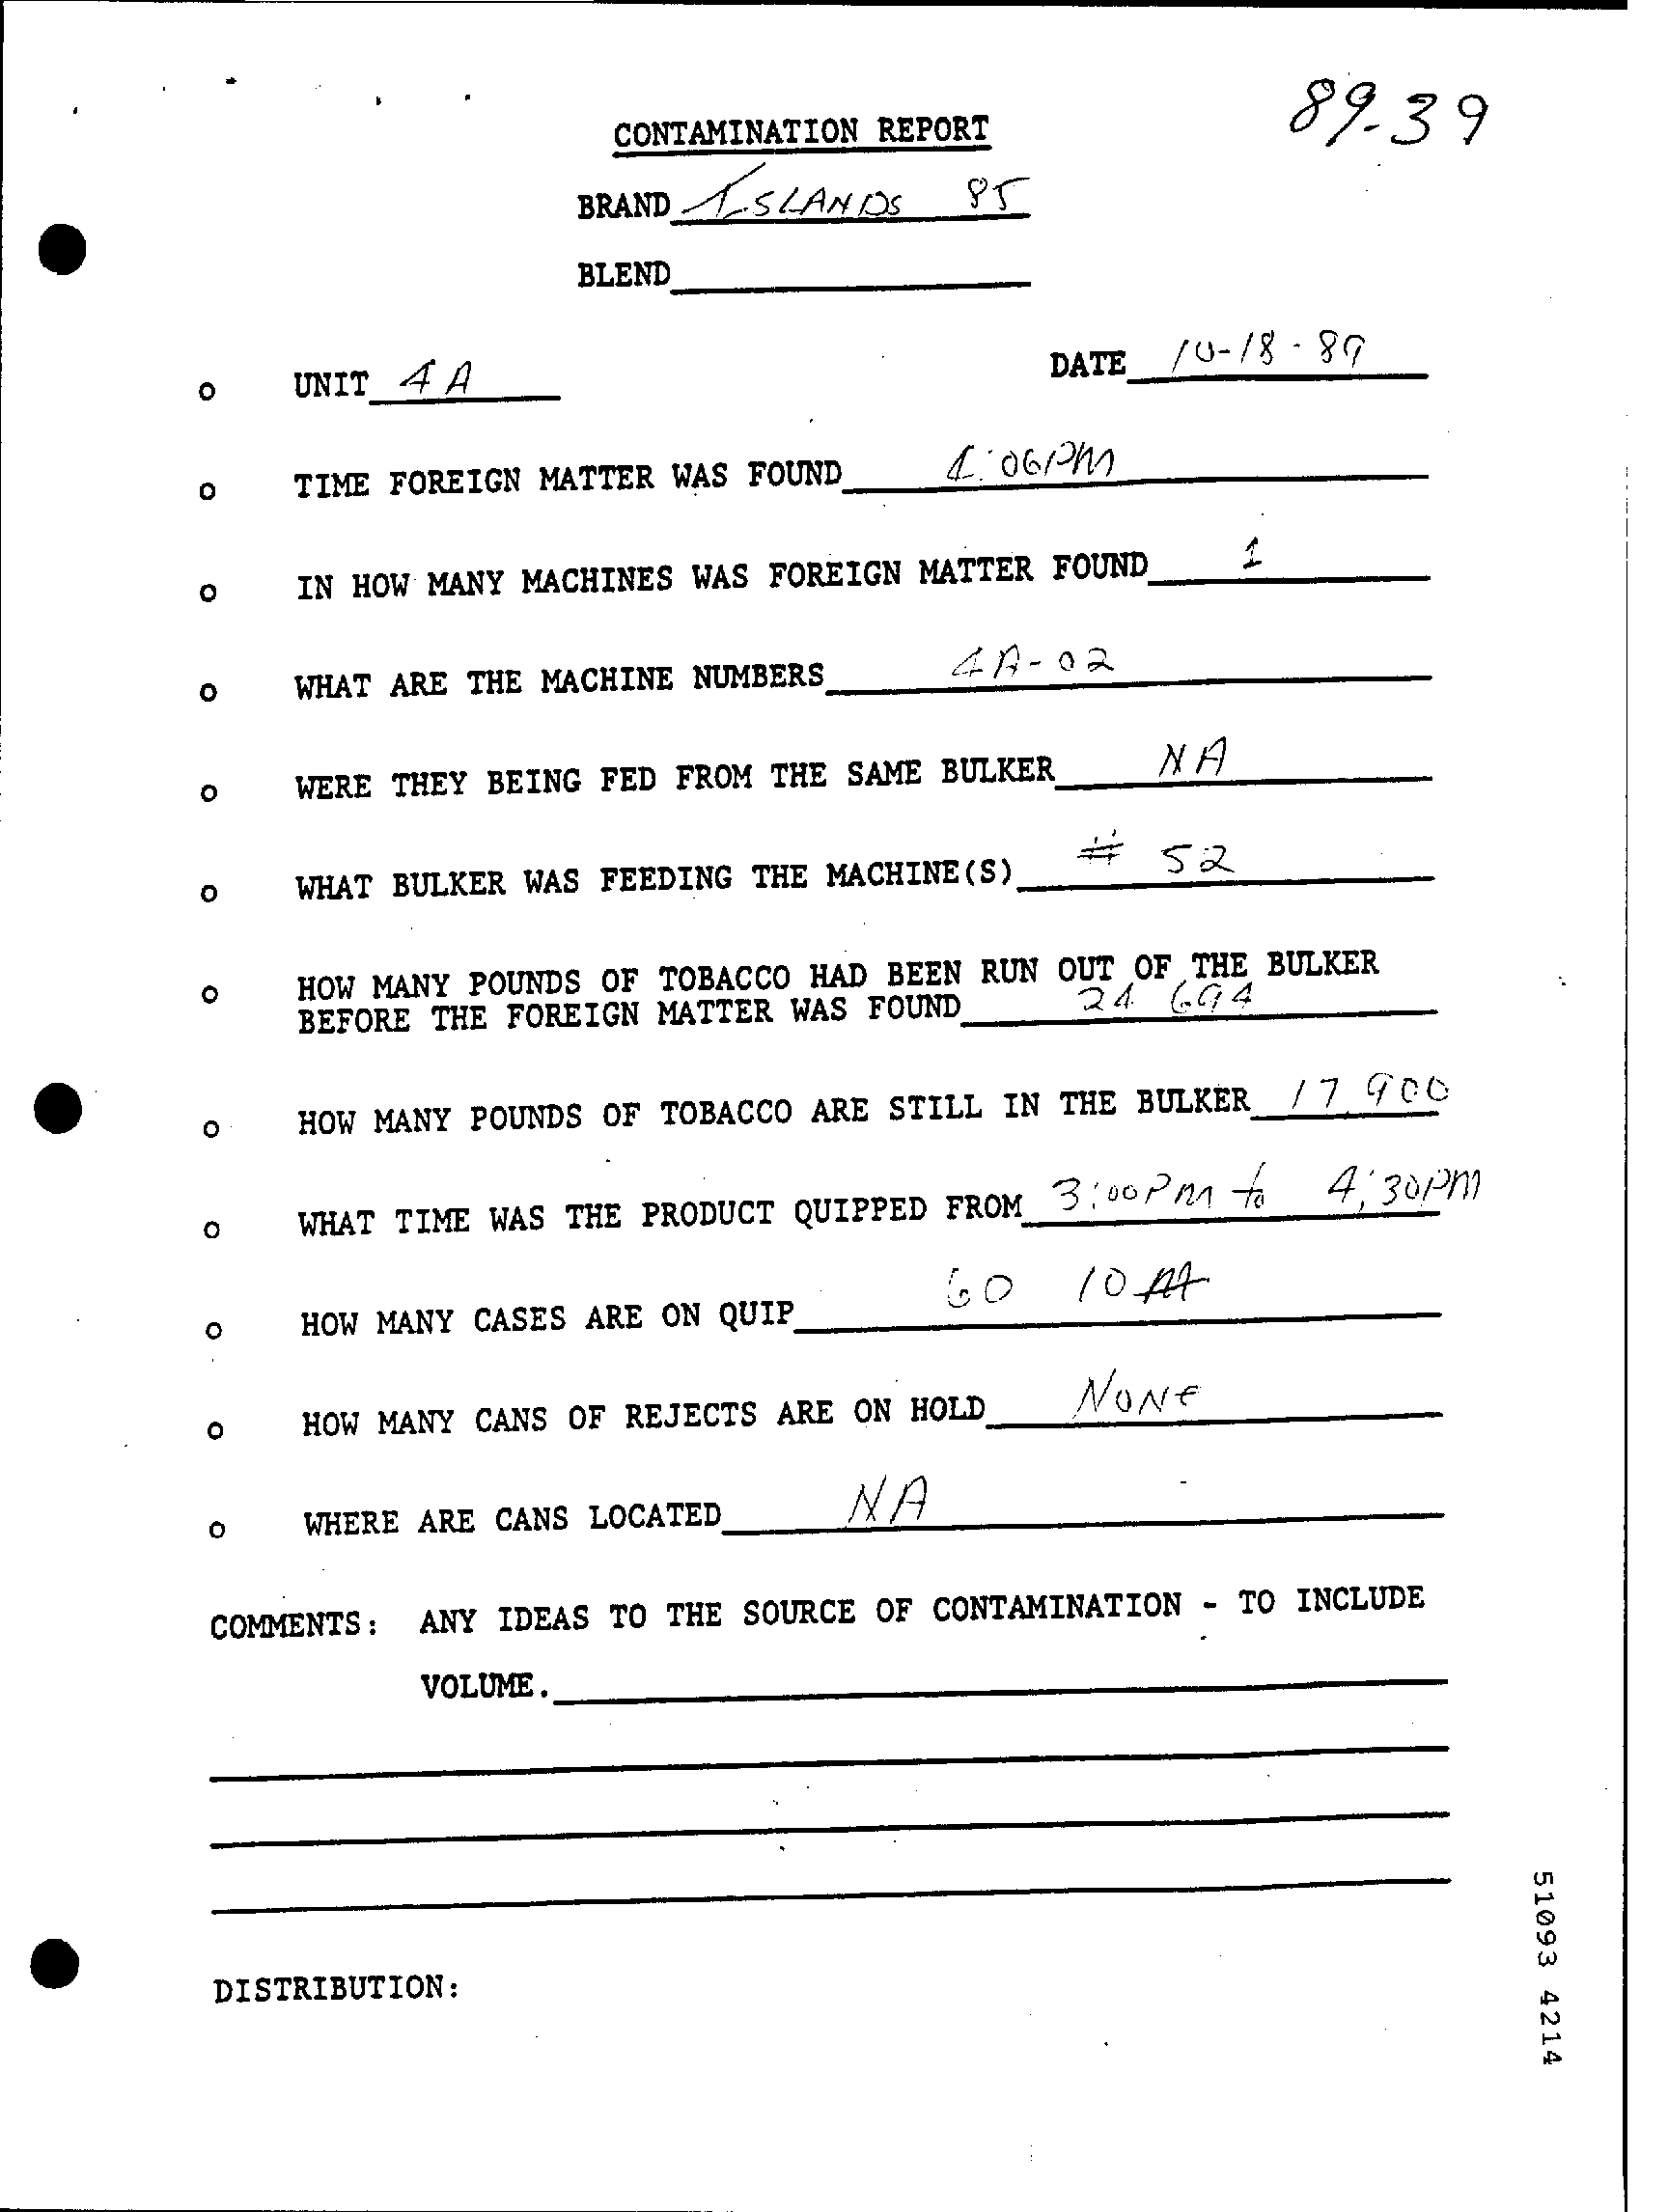 89-39
CONTAMINATION REPORT
BRAND ISLANDS 85
BLEND
o UNIT 4A DATE 10-18-89
o TIME FOREIGN MATTER WAS FOUND 4:06PM
o IN HOW MANY MACHINES WAS FOREIGN MATTER FOUND 1
o WHAT ARE THE MACHINE NUMBERS 4A-02
o WERE THEY BEING FED FROM THE SAME BULKER NA
o WHAT BULKER WAS FEEDING THE MACHINE(S) # 52
o HOW MANY POUNDS OF TOBACCO HAD BEEN RUN OUT OF THE BULKER
BEFORE THE FOREIGN MATTER WAS FOUND 24 694
o HOW MANY POUNDS OF TOBACCO ARE STILL IN THE BULKER 17 900
o WHAT TIME WAS THE PRODUCT QUIPPED FROM 3:00PM to 4:30PM
o HOW MANY CASES ARE ON QUIP 60 10
o HOW MANY CANS OF REJECTS ARE ON HOLD NONE
o WHERE ARE CANS LOCATED NA
COMMENTS: ANY IDEAS TO THE SOURCE OF CONTAMINATION - TO INCLUDE
VOLUME.
DISTRIBUTION:
51093 4214